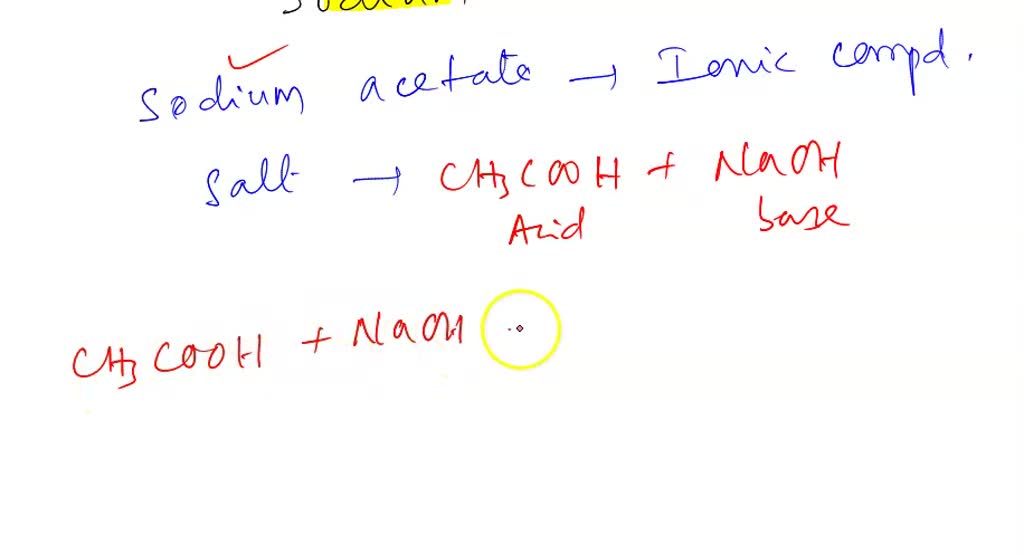 Sodium acetate → Ionic compd.
Salt → CH3COOH + NaOH
Acid base
CH3COOH + NaOH